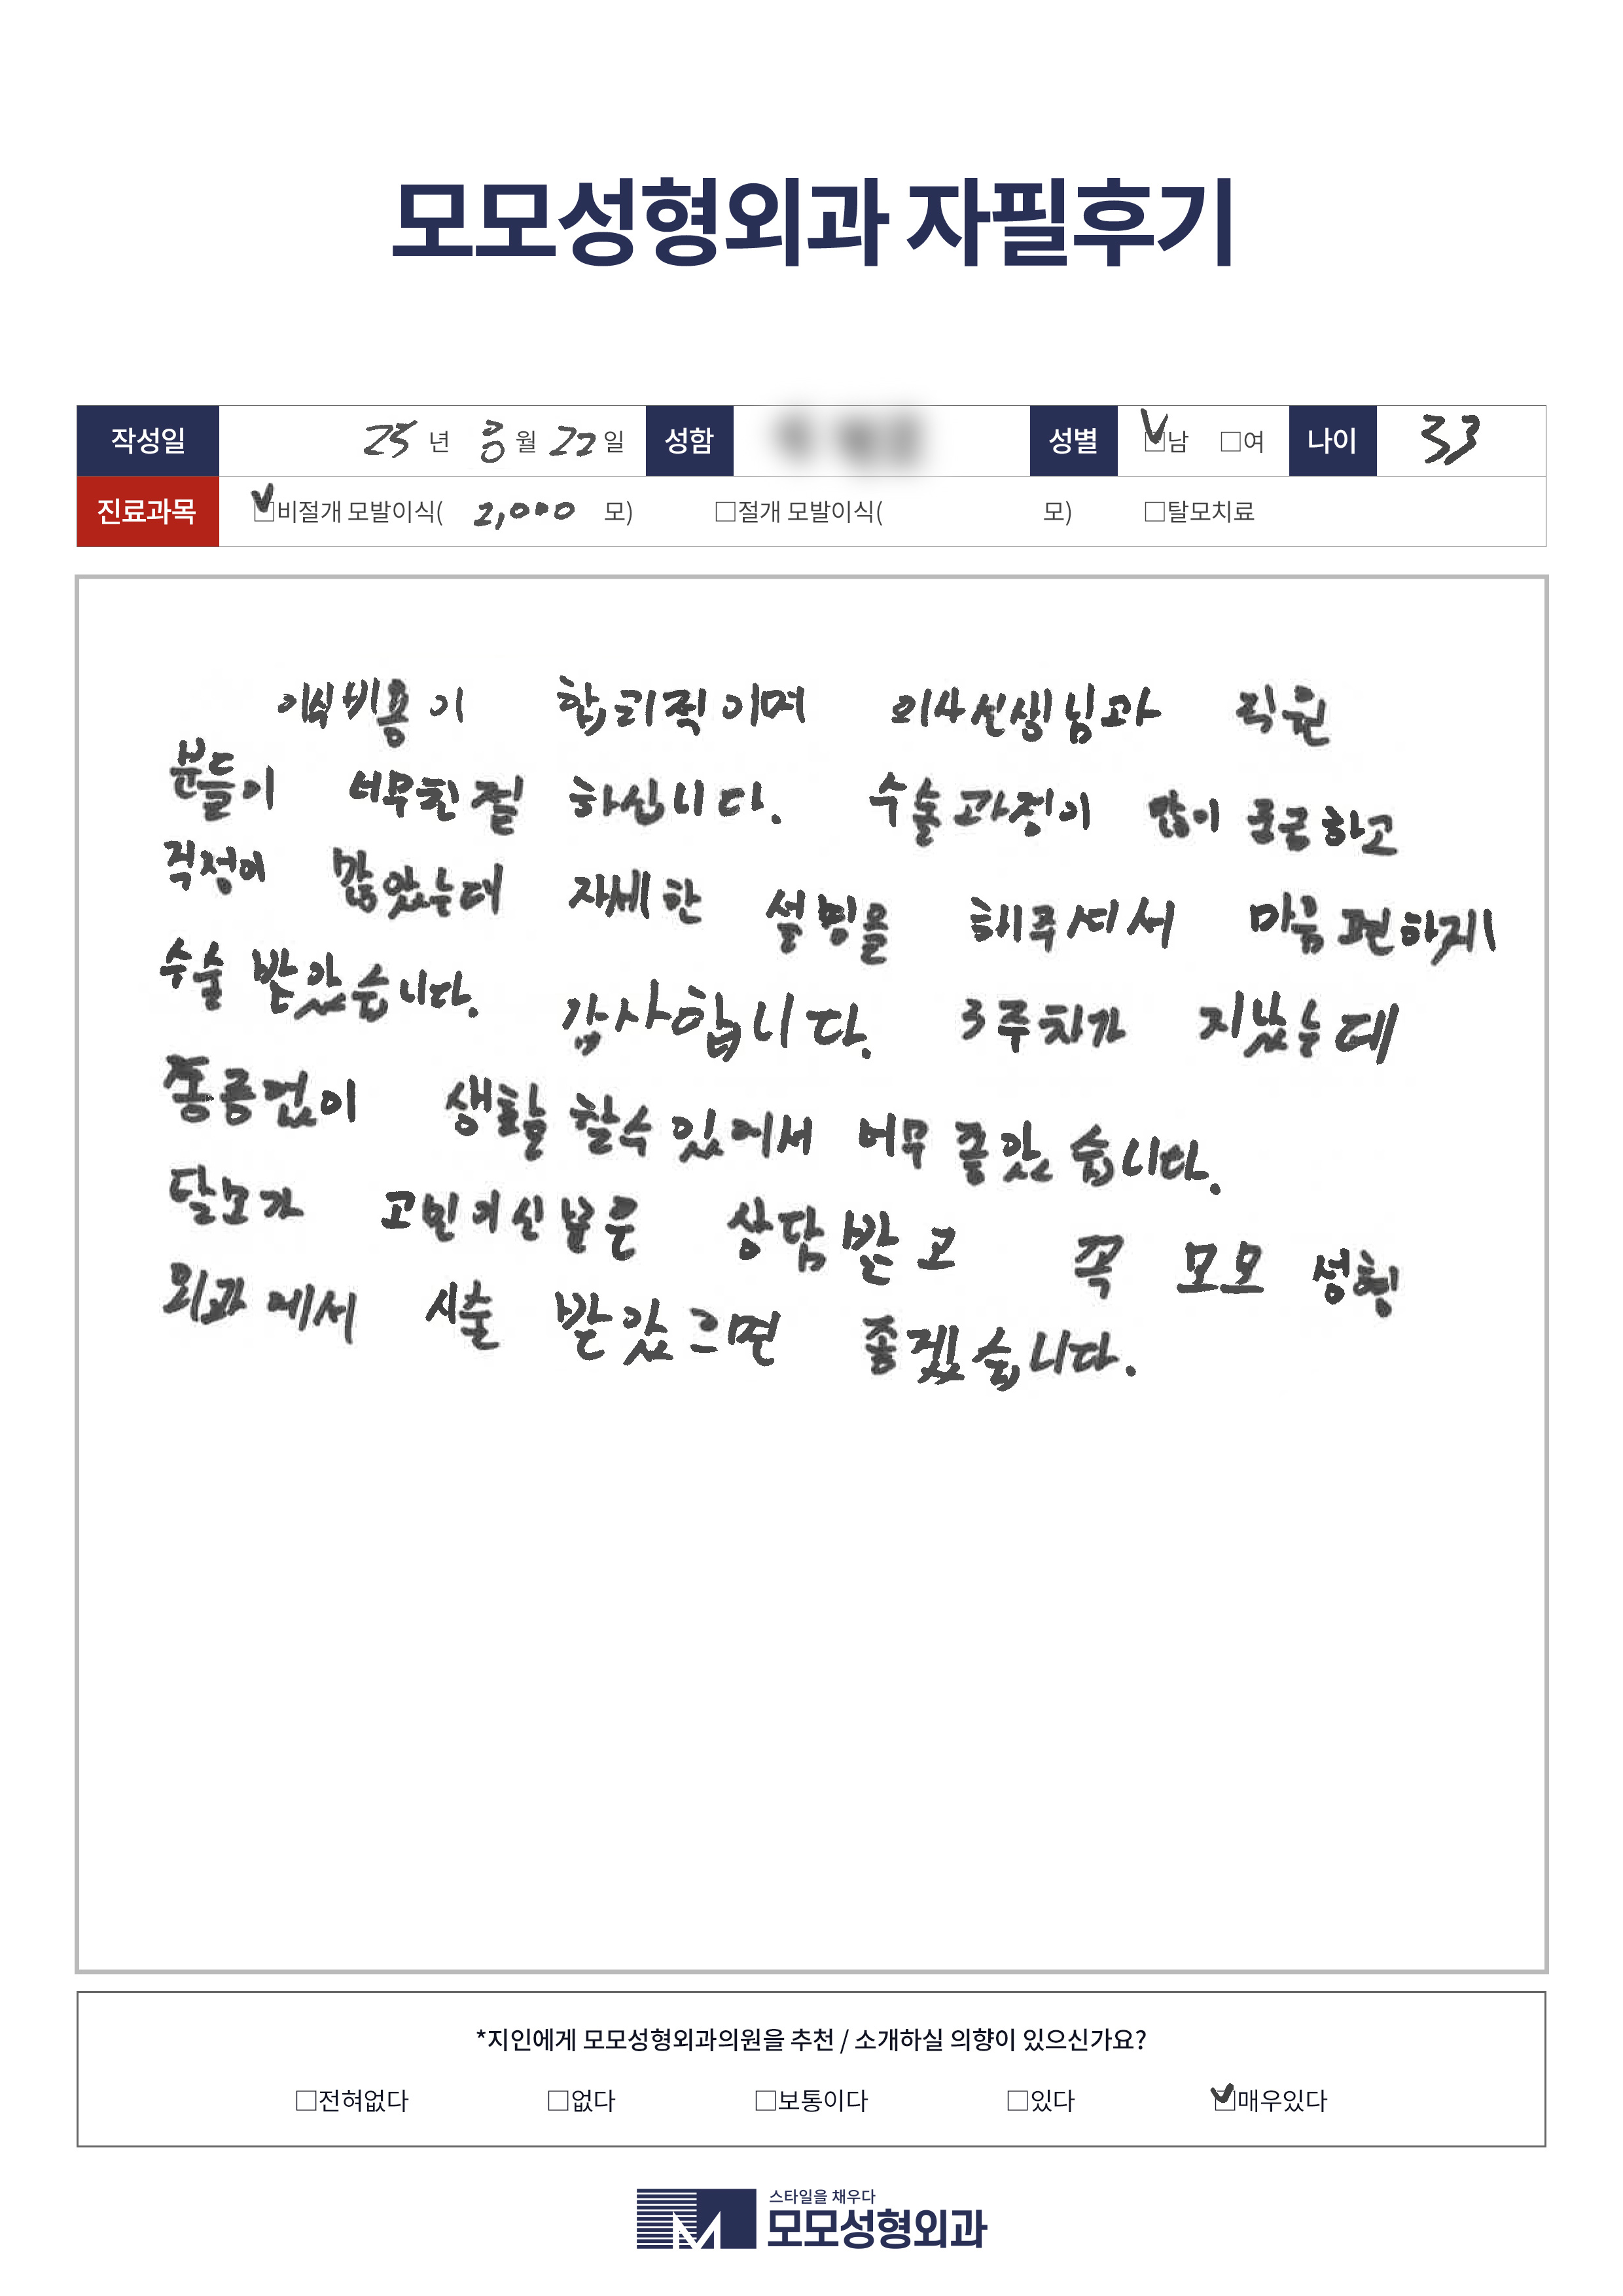 모모성형외과 자필후기
작성일 25 년 8 월 22 일 성함 성별 ☑남 □여 나이 33
진료과목 ☑비절개 모발이식( 2,000 모) □절개 모발이식( 모) □탈모치료
이식비용이 합리적이며 의사선생님과 직원
분들이 너무친절 하십니다. 수술과정이 많이 궁금하고
걱정이 많았는데 자세한 설명을 해주셔서 마음 편하게
수술 받았습니다. 감사합니다. 3주차가 지났는데
통증없이 생활 할수 있어서 너무 좋았습니다.
탈모가 고민이신분은 상담받고 꼭 모모 성형
외과에서 시술 받았으면 좋겠습니다.
*지인에게 모모성형외과의원을 추천 / 소개하실 의향이 있으신가요?
□전혀없다 □없다 □보통이다 □있다 ☑매우있다
스타일을 채우다
모모성형외과